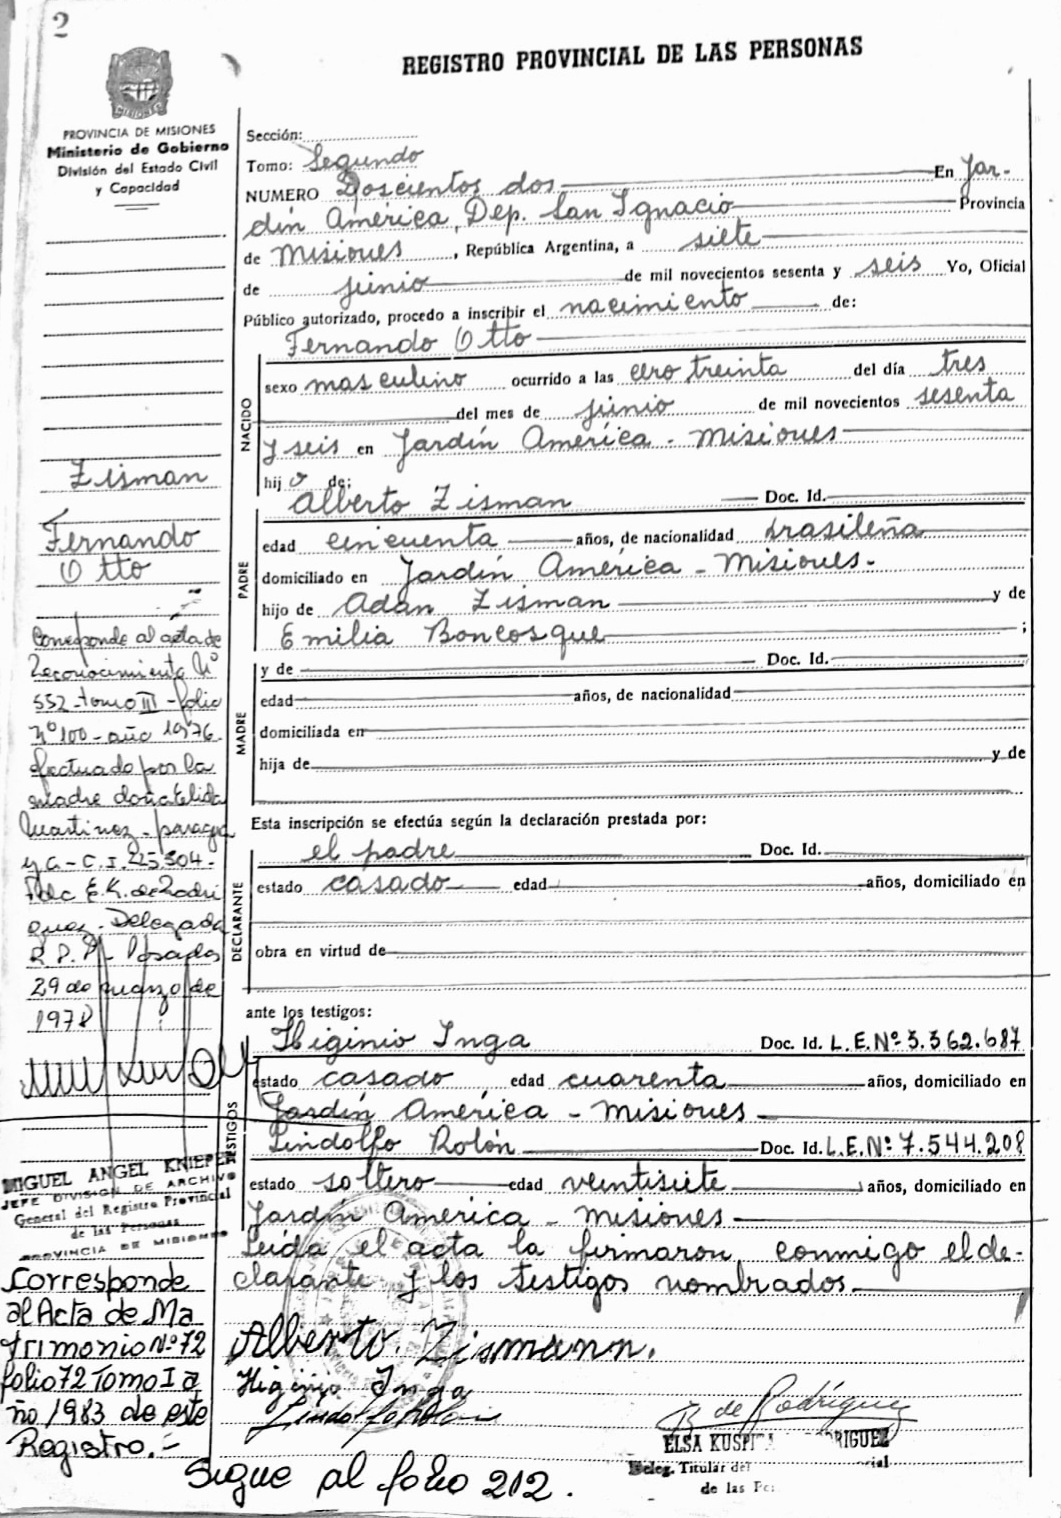 2
REGISTRO PROVINCIAL DE LAS PERSONAS
MISIONES
PROVINCIA DE MISIONES
Ministerio de Gobierno
División del Estado Civil
y Capacidad
Sección:
Tomo: Segundo
NUMERO Doscientos dos En Jar-
dín América, Dep. San Ignacio Provincia
de Misiones, República Argentina, a siete
de junio de mil novecientos sesenta y seis Yo, Oficial
Público autorizado, procedo a inscribir el nacimiento de:
Fernando Otto
NACIDO
sexo masculino ocurrido a las cero treinta del día tres
del mes de junio de mil novecientos sesenta
y seis en Jardín América - Misiones
hijo de:
Alberto Zisman Doc. Id.
PADRE
edad cincuenta años, de nacionalidad brasileña
domiciliado en Jardín América - Misiones -
hijo de Adán Zisman y de
Emilia Boncosque ;
MADRE
y de Doc. Id.
edad años, de nacionalidad
domiciliada en
hija de y de
Esta inscripción se efectúa según la declaración prestada por:
DECLARANTE
el padre Doc. Id.
estado casado edad años, domiciliado en
obra en virtud de
ante los testigos:
TESTIGOS
Higinio Inga Doc. Id. L.E.Nº 3.362.687
estado casado edad cuarenta años, domiciliado en
Jardín América - Misiones
Lindolfo Rolón Doc. Id. L.E.Nº 7.544.208
estado soltero edad veintisiete años, domiciliado en
Jardín América - Misiones
Leída el acta la firmaron conmigo el de-
clarante y los testigos nombrados
Alberto. Zismann.
Higinio Inga
Lindolfo Rolón
B de Rodríguez
ELSA KUSP RIGUEZ
Deleg. Titular del
de las
Sigue al folio 212.
Zisman
Fernando
Otto
Corresponde al acta de
Reconocimiento Nº
552 - tomo III - folio
Nº 100 - año 1976
efectuado por la
madre doña
Martinez - paragua
ya - C.I. 225304 -
E.K. de Rodri
guez - Delegada
R.P.P. - Posadas
29 de marzo de
1978
MIGUEL ANGEL KNIEPER
JEFE DIVISION DE ARCHIVO
General del Registro Provincial
de las Personas
PROVINCIA DE MISIONES
Corresponde
al Acta de Ma
trimonio Nº 72
folio 72 Tomo I a
ño 1983 de este
Registro. -